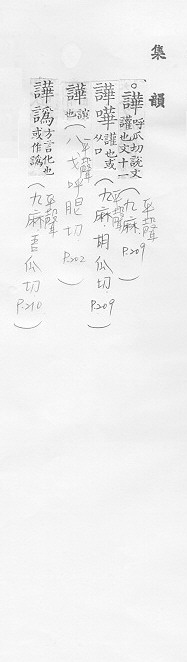 集韻
○譁呼瓜切說文讙也文十一(平聲九麻P.209)
譁嘩讙也或从口(平聲九麻.胡瓜切P.209)
譁諠也(平聲八戈呼肥切P.202)
譁譌方言化也或作譌(平聲九麻吾瓜切P.210)